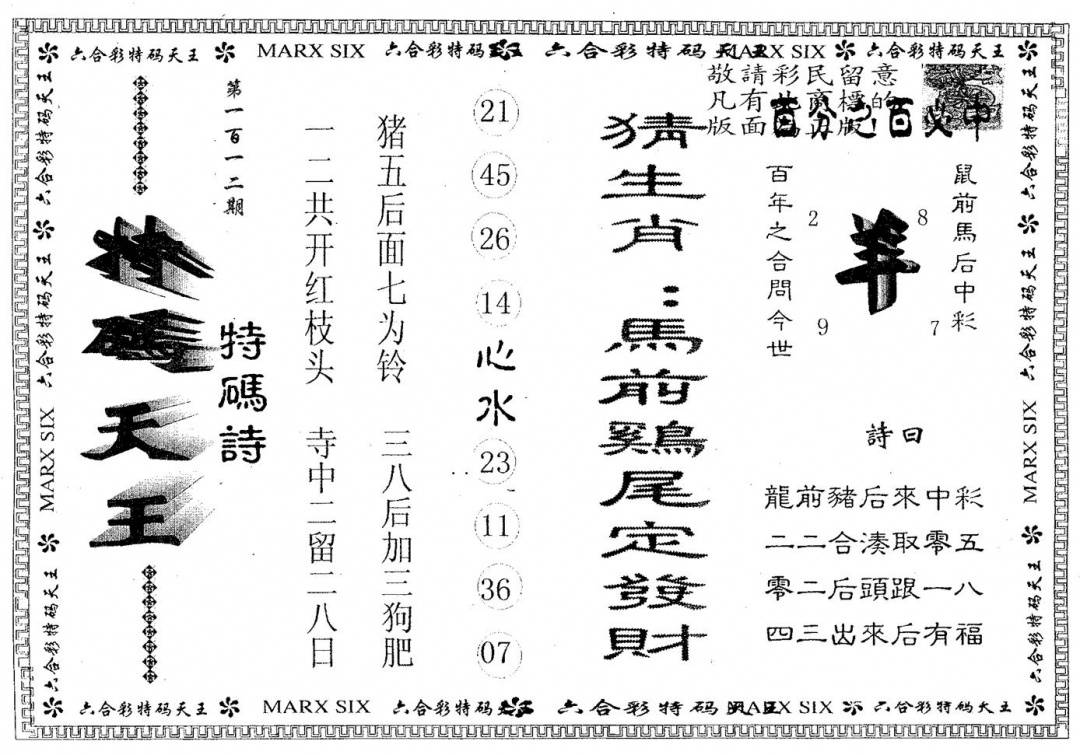 六合彩特码天王 MARX SIX 六合彩特码天王 六合彩特码天王 MARX SIX 六合彩特码天王
敬請彩民留意
凡有此商標的
版面為正版
百分之百必中
鼠前馬后中彩
羊
8
2
7
9
百年之合問今世
詩曰
龍前豬后來中彩
二二合湊取零五
零二后頭跟一八
四三出來后有福
猜生肖：馬前鷄尾定發財
21
45
26
14
心水
23
11
36
07
猪五后面七为铃 三八后加三狗肥
一二共开红枝头 寺中二留二八日
第一百一二期
特碼詩
特碼天王
六合彩特码天王 MARX SIX 六合彩特码天王 六合彩特码天王
六合彩特码天王 六合彩特码天王 MARX SIX 六合彩特码天王
六合彩特码天王 MARX SIX 六合彩特码天王 六合彩特码天王 MARX SIX 六合彩特码天王